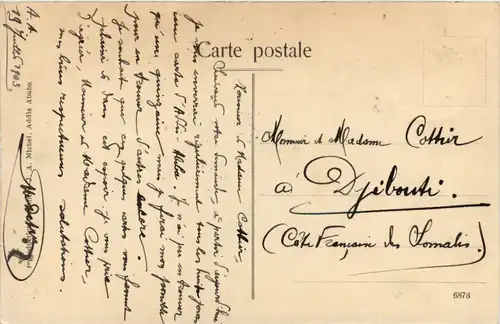 Carte postale
A. A.
19 Juillet 1903
Monsieur & Madame Cottier,
Suivant votre demande, à partir d'aujourd'hui
je vous enverrai régulièrement tous les huit jours
une carte d'Addis Ababa. Je n'ai pu en trouver
qu'une quinzaine mais je ferai mon possible
pour en trouver d'autres encore.
Je souhait que ces quelques cartes vous fassent
plaisir & dans cet espoir je vous prie
d'agréer, Monsieur & Madame Cottier,
mes biens respectueuses salutations.
Michel, Addis Ababa
Monsieur et Madame Cottier
à Djibouti.
(Côte Française des Somalis.)
6873